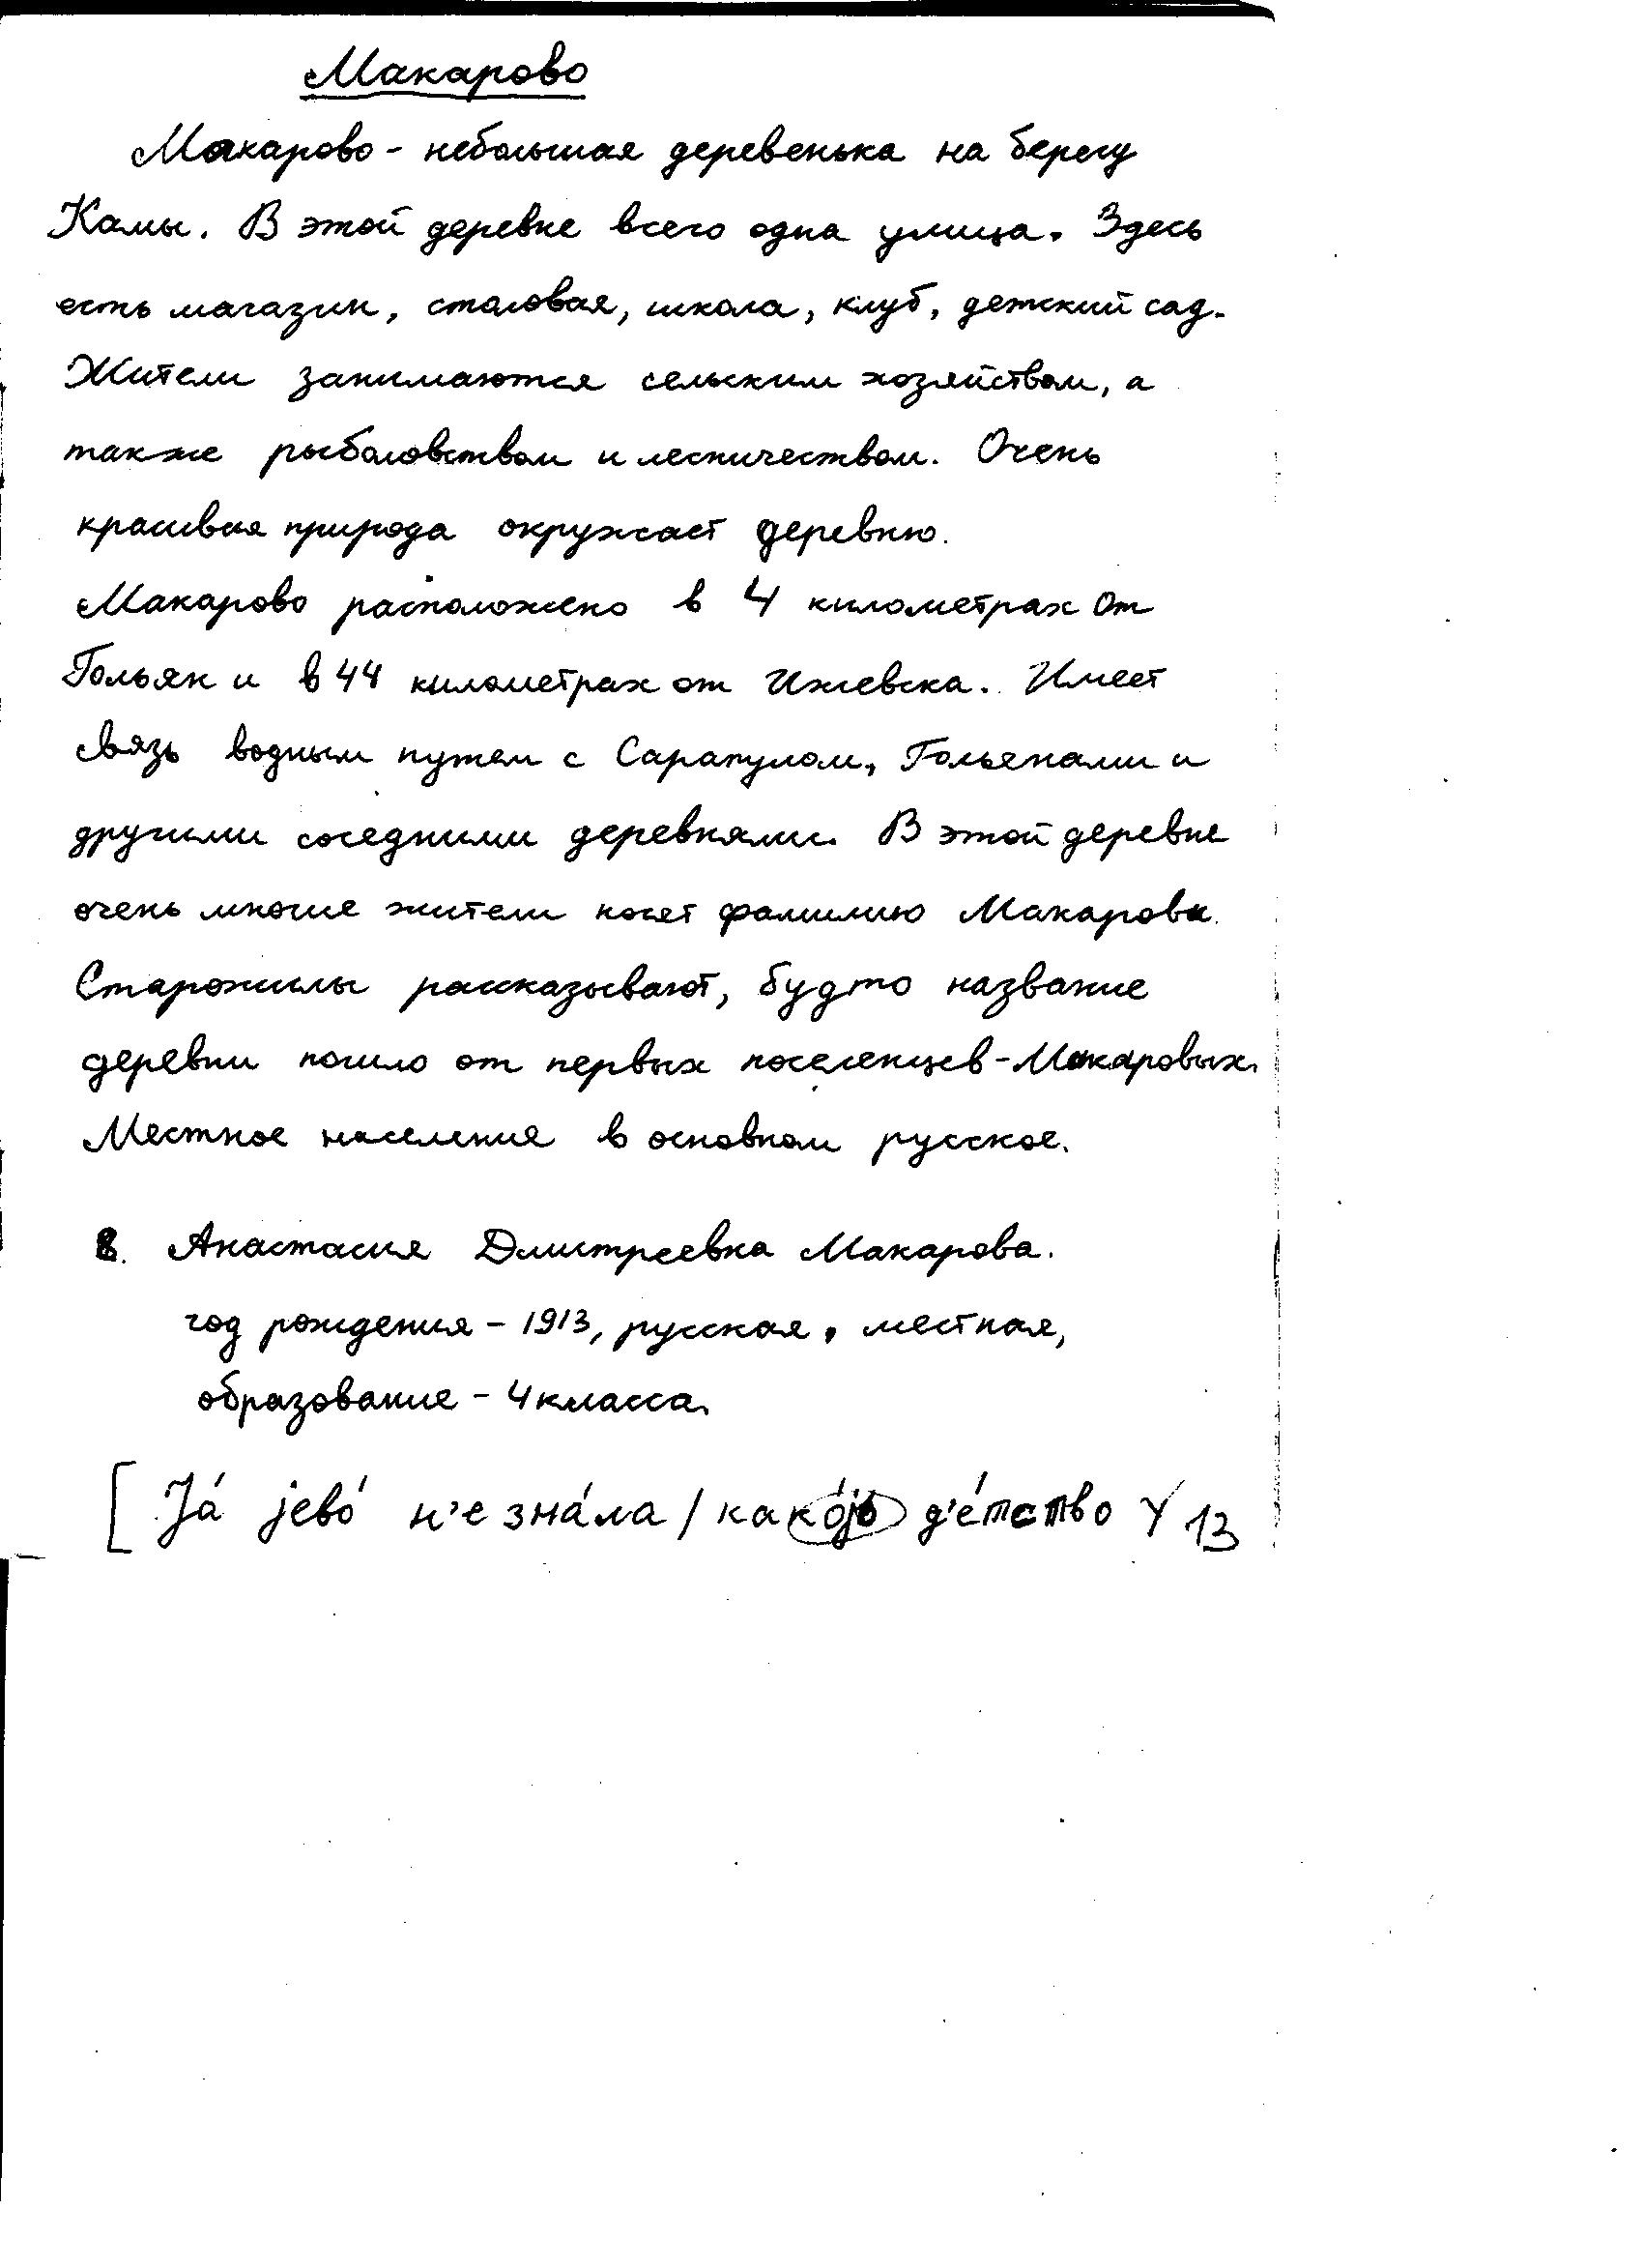 Макарово
Макарово - небольшая деревенька на берегу
Камы. В этой деревне всего одна улица. Здесь
есть магазин, столовая, школа, клуб, детский сад.
Жители занимаются сельским хозяйством, а
также рыболовством и лесничеством. Очень
красивая природа окружает деревню.
Макарово расположено в 4 километрах от
Гольян и в 44 километрах от Ижевска. Имеет
связь водным путем с Сарапулом, Гольянами и
другими соседними деревнями. В этой деревне
очень многие жители носят фамилию Макаровы.
Старожилы рассказывают, будто название
деревни пошло от первых поселенцев - Макаровых.
Местное население в основном русское.
8. Анастасия Дмитреевна Макарова.
год рождения - 1913, русская, местная,
образование - 4 класса.
[ Jа́ jево́ н'е зна́ла / како́jо д'е́тство У 13